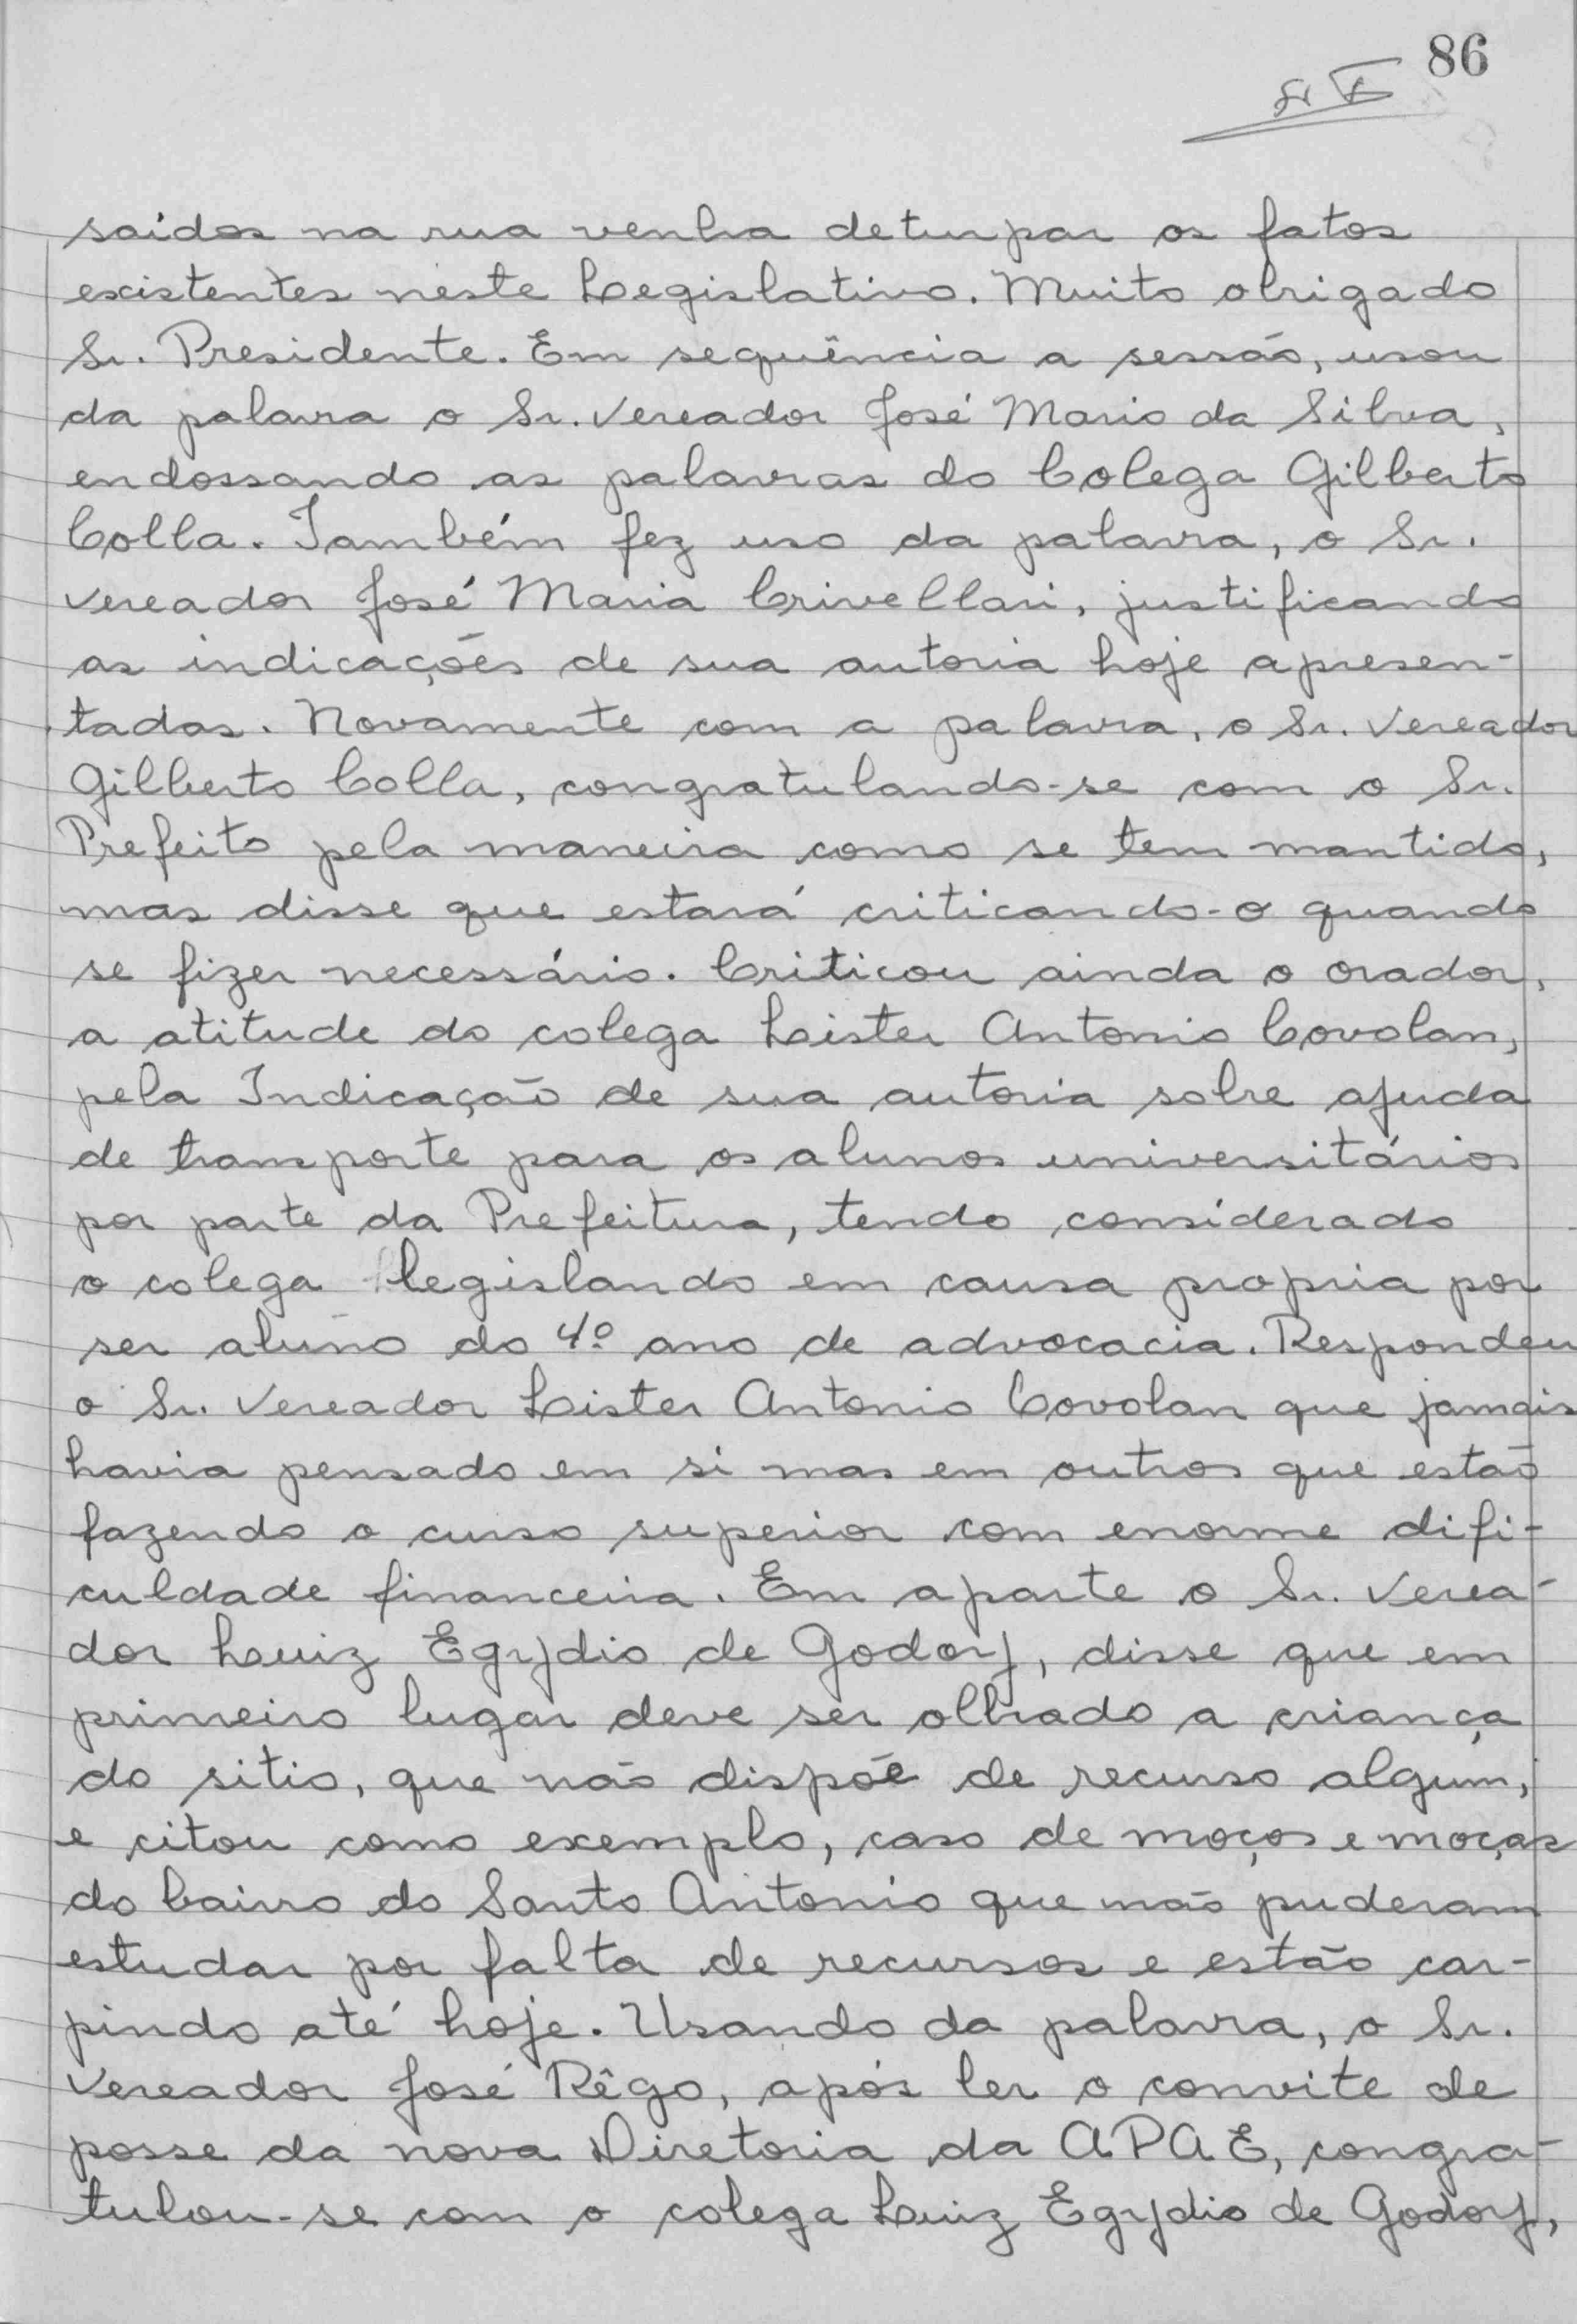 86
saídos na rua venha deturpar os fatos
existentes neste Legislativo. Muito obrigado
Sr. Presidente. Em sequência a sessão, usou
da palavra o Sr. Vereador José Mario da Silva,
endossando as palavras do Colega Gilberto
Colla. Também fez uso da palavra, o Sr.
Vereador José Maria Crivellari, justificando
as indicações de sua autoria hoje apresen-
tadas. Novamente com a palavra, o Sr. Vereador
Gilberto Colla, congratulando-se com o Sr.
Prefeito pela maneira como se tem mantido,
mas disse que estará criticando-o quando
se fizer necessário. Criticou ainda o orador,
a atitude do colega Lister Antonio Covolan,
pela Indicação de sua autoria sobre ajuda
de transporte para os alunos universitários
por parte da Prefeitura, tendo considerado
o colega legislando em causa propria por
ser aluno do 4º ano de advocacia. Respondeu
o Sr. Vereador Lister Antonio Covolan que jamais
havia pensado em si mas em outros que estão
fazendo o curso superior com enorme difi-
culdade financeira. Em aparte o Sr. Verea-
dor Luiz Egydio de Godoy, disse que em
primeiro lugar deve ser olhado a criança
do sitio, que não dispõe de recurso algum,
e citou como exemplo, caso de moços e moças
do bairro do Santo Antonio que não puderam
estudar por falta de recursos e estão car-
pindo até hoje. Usando da palavra, o Sr.
Vereador José Rêgo, após ler o convite de
posse da nova Diretoria da APAE, congra-
tulou-se com o colega Luiz Egydio de Godoy,